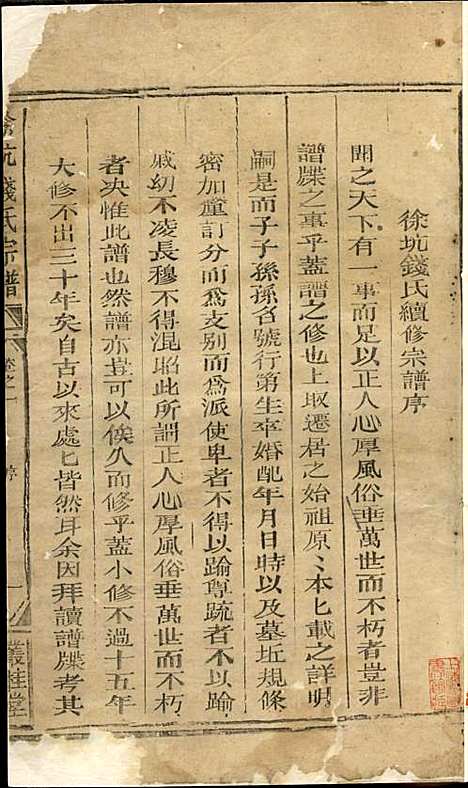 徐坑錢氏續修宗譜序
聞之天下有一事而足以正人心厚風俗垂萬世而不朽者豈非
譜牒之事乎蓋譜之修也上取遷居之始祖原〻本匕載之詳明
嗣是而子子孫孫名號行第生卒婚配年月日時以及墓坵規條
密加釐訂分而爲支别而爲派使卑者不得以踰尊疏者不以踰
戚幼不凌長穆不得混昭此所謂正人心厚風俗垂萬世而不朽
者决惟此譜也然譜亦豈可以俟久而修乎蓋小修不過十五年
大修不出三十年矣自古以來處匕皆然耳余因拜讀譜牒考其
徐坑錢氏宗譜
卷之一
序
一
叢桂堂